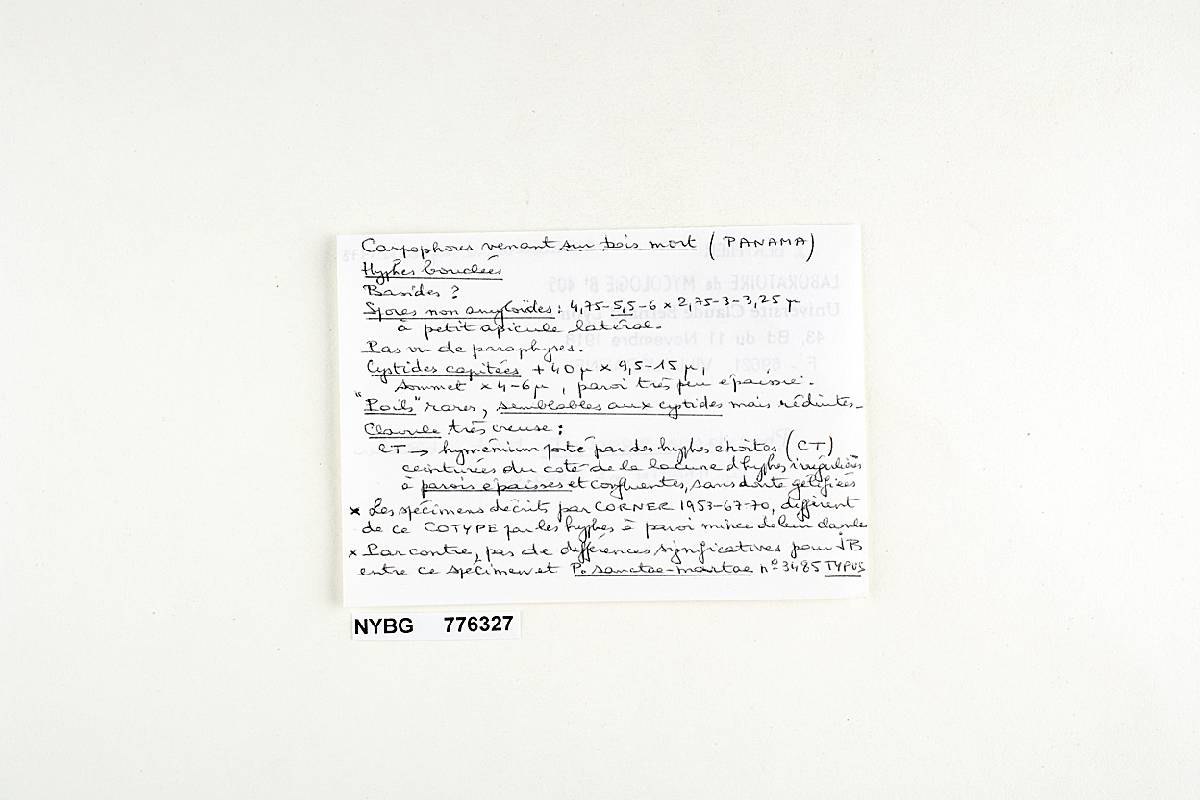 Carpophores venant sur bois mort (PANAMA)
Hyphes bouclées
Basides ?
Spores non amyloïdes : 4,75-5,5-6 x 2,75-3-3,25 µ
à petit apicule latéral.
Pas vu de paraphyses.
Cystides capitées + 40 µ x 9,5-15 µ,
sommet x 4-6 µ, paroi très peu épaissie.
"Poils" rares, semblables aux cystides mais réduites-
Clavule très creuse :
CT → hyménium porté par des hyphes étroites (CT)
ceinturées du coté de la lacune d'hyphes irrégulières
à parois épaisses et confluentes, sans doute gélifiées
x Les spécimens décrits par CORNER 1953-67-70, diffèrent
de ce COTYPE par les hyphes à paroi mince de leur clavule
x Par contre, pas de différences significatives pour JB
entre ce spécimen et P. sanctae-martae nº 3485 TYPUS
LABORATOIRE de MYCOLOGIE Bt 405
Université Claude Bernard
43, Bd du 11 Novembre 1918
NYBG 776327